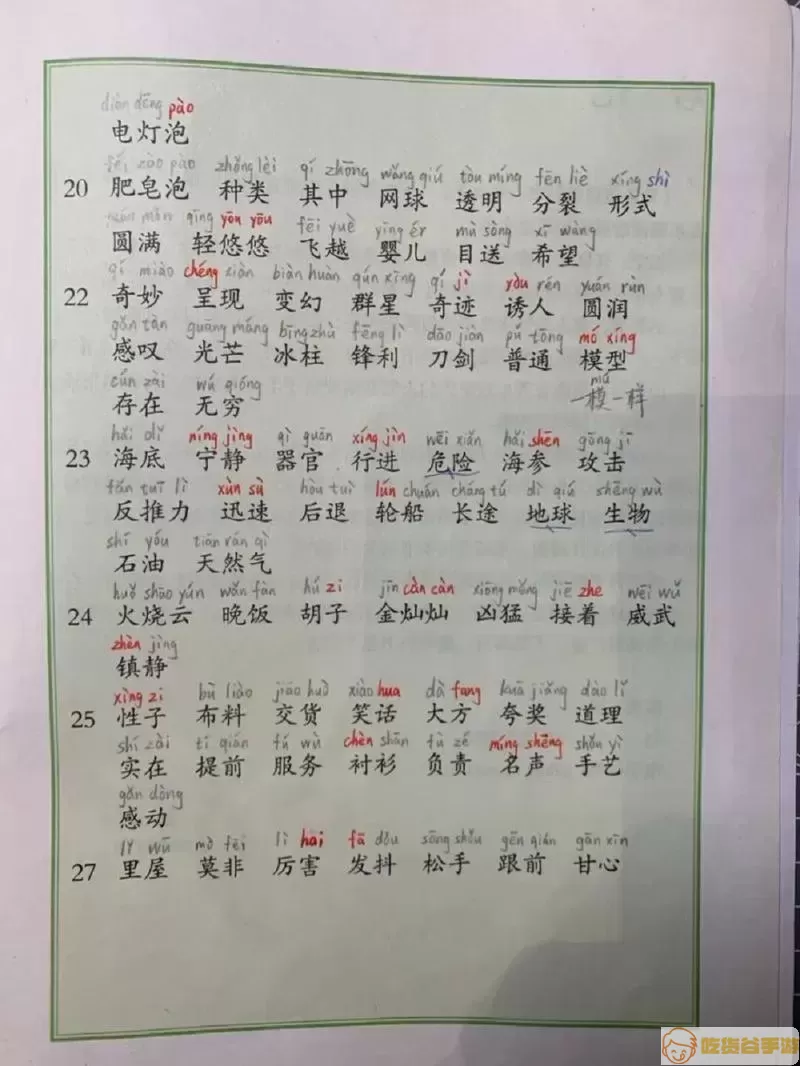 diàn dēng pào
电灯泡
féi zào pào zhǒng lèi qí zhōng wǎng qiú tòu míng fēn liè xíng shì
20 肥皂泡 种类 其中 网球 透明 分裂 形式
yuán mǎn qīng yōu yōu fēi yuè yīng ér mù sòng xī wàng
圆满 轻悠悠 飞越 婴儿 目送 希望
qí miào chéng xiàn biàn huàn qún xīng qí jì yòu rén yuán rùn
22 奇妙 呈现 变幻 群星 奇迹 诱人 圆润
gǎn tàn guāng máng bīng zhù fēng lì dāo jiàn pǔ tōng mó xíng
感叹 光芒 冰柱 锋利 刀剑 普通 模型
cún zài wú qióng mú
存在 无穷 一模一样
hǎi dǐ níng jìng qì guān xíng jìn wēi xiǎn hǎi shēn gōng jī
23 海底 宁静 器官 行进 危险 海参 攻击
fǎn tuī lì xùn sù hòu tuì lún chuán cháng tú dì qiú shēng wù
反推力 迅速 后退 轮船 长途 地球 生物
shí yóu tiān rán qì
石油 天然气
huǒ shāo yún wǎn fàn hú zi jīn càn càn xiōng měng jiē zhe wēi wǔ
24 火烧云 晚饭 胡子 金灿灿 凶猛 接着 威武
zhèn jìng
镇静
xìng zi bù liào jiāo huò xiào hua dà fang kuā jiǎng dào lǐ
25 性子 布料 交货 笑话 大方 夸奖 道理
shí zài tí qián fú wù chèn shān fù zé míng shēng shǒu yì
实在 提前 服务 衬衫 负责 名声 手艺
gǎn dòng
感动
lǐ wū mò fēi lì hài fā dǒu sōng shǒu gēn qián gān xīn
27 里屋 莫非 厉害 发抖 松手 跟前 甘心
吃货谷手游